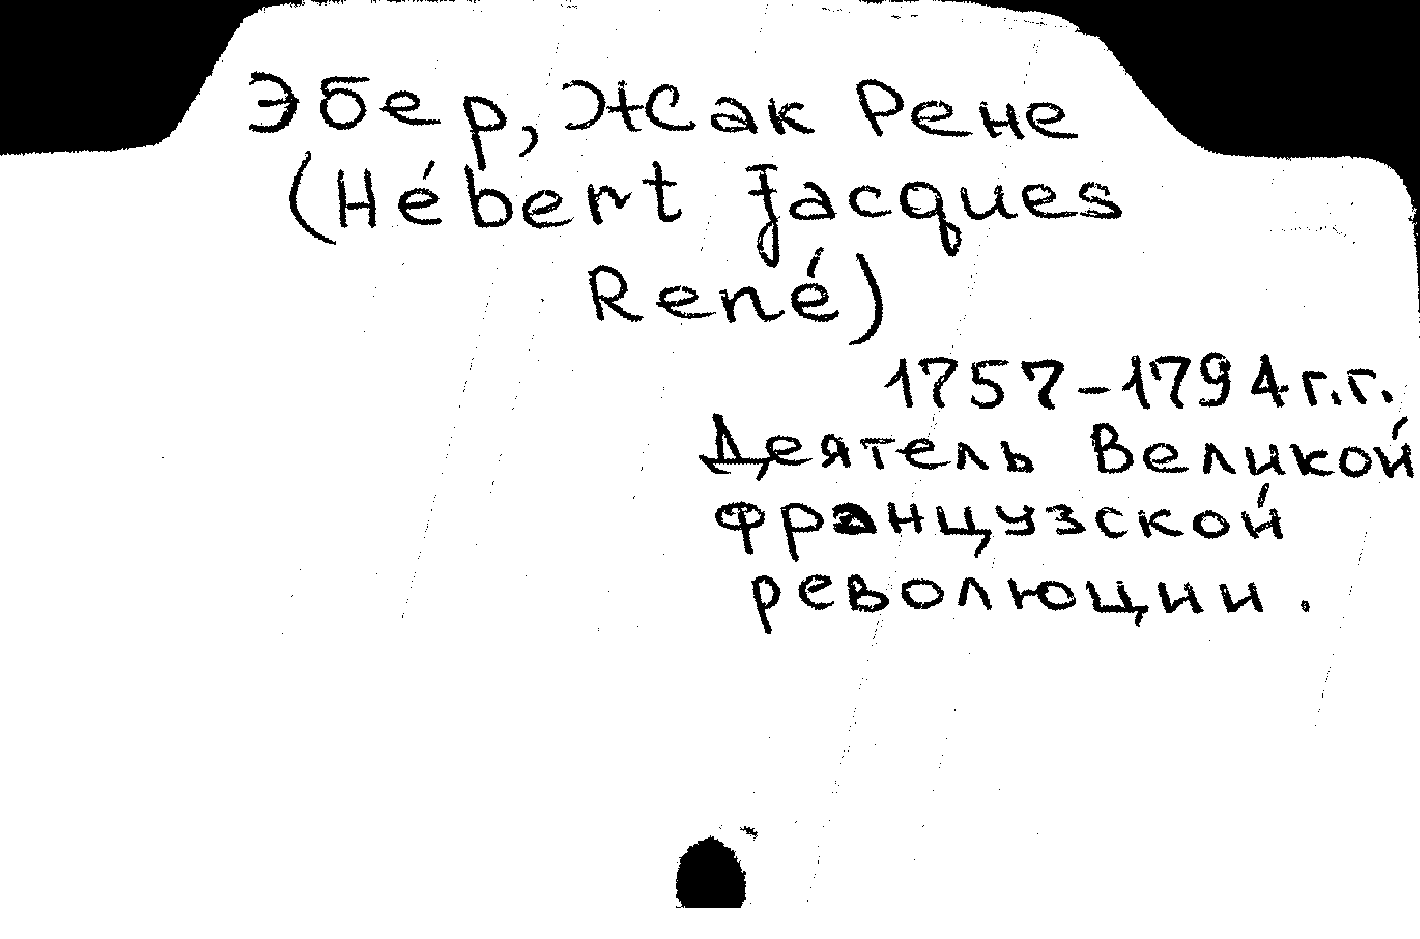 Эбер, Жак Рене
(Hébert Jacques
René)
1757-1794 г.г.
Деятель Великой
французской
революции.